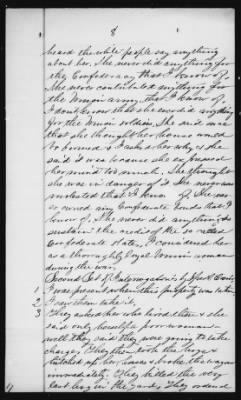 8
heard the white people say anything
about her. She never did anything for
the Confederacy that I know of.
She never contributed anything for
the Union army that I know of.
I don't know that she ever did anything
for the Union soldiers. She said
that she thought her house would
be burned & I asked her why & she
said it was because she expressed
her mind too much. She thought
she was in danger of it.
that I know of. She
owned any Confederate bonds that I
know of. She never did anything to
sustain the credit of the so called
Confederate States. I considered her
as a thoroughly loyal Union woman
during the war.
Second Set of Interrogatories by Spcl. Com.
1 I was present when this property was taken
2 I saw them take it.
3 They asked her who lived there & she
said only
well they said they were going to take
charge, & they then took the hogs &
hitched up her horse & broke the wagon
immediately. They killed the very
last hog in the yard. They